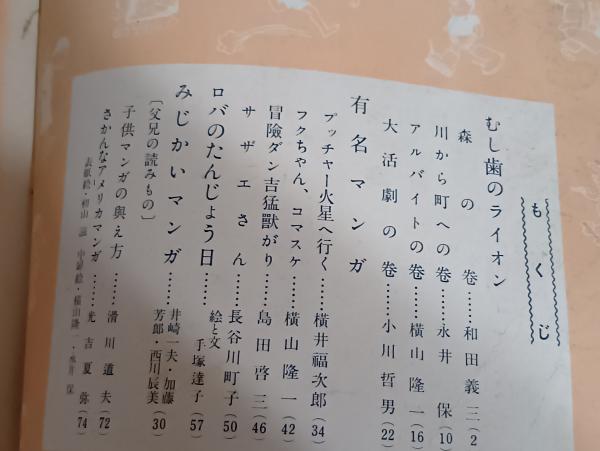 もくじ
むし歯のライオン
森の巻……和田義三(2
川から町への巻……永井保(10)
アルバイトの巻……横山隆一(16)
大活劇の巻……小川哲男(22)
有名マンガ
プッチャー火星へ行く……横井福次郎(34)
フクちゃん、コマスケ……横山隆一(42)
冒險ダン吉猛獸がり……島田啓三(46)
サザエさん……長谷川町子(50)
ロバのたんじょう日……絵と文 手塚達子(57)
みじかいマンガ……井崎一夫・加藤芳郎・西川辰美(30)
〔父兄の読みもの〕
子供マンガの與え方……滑川道夫(72)
さかんなアメリカマンガ……光吉夏弥(74)
表紙絵・和山 中扉絵・横山隆一・永井保